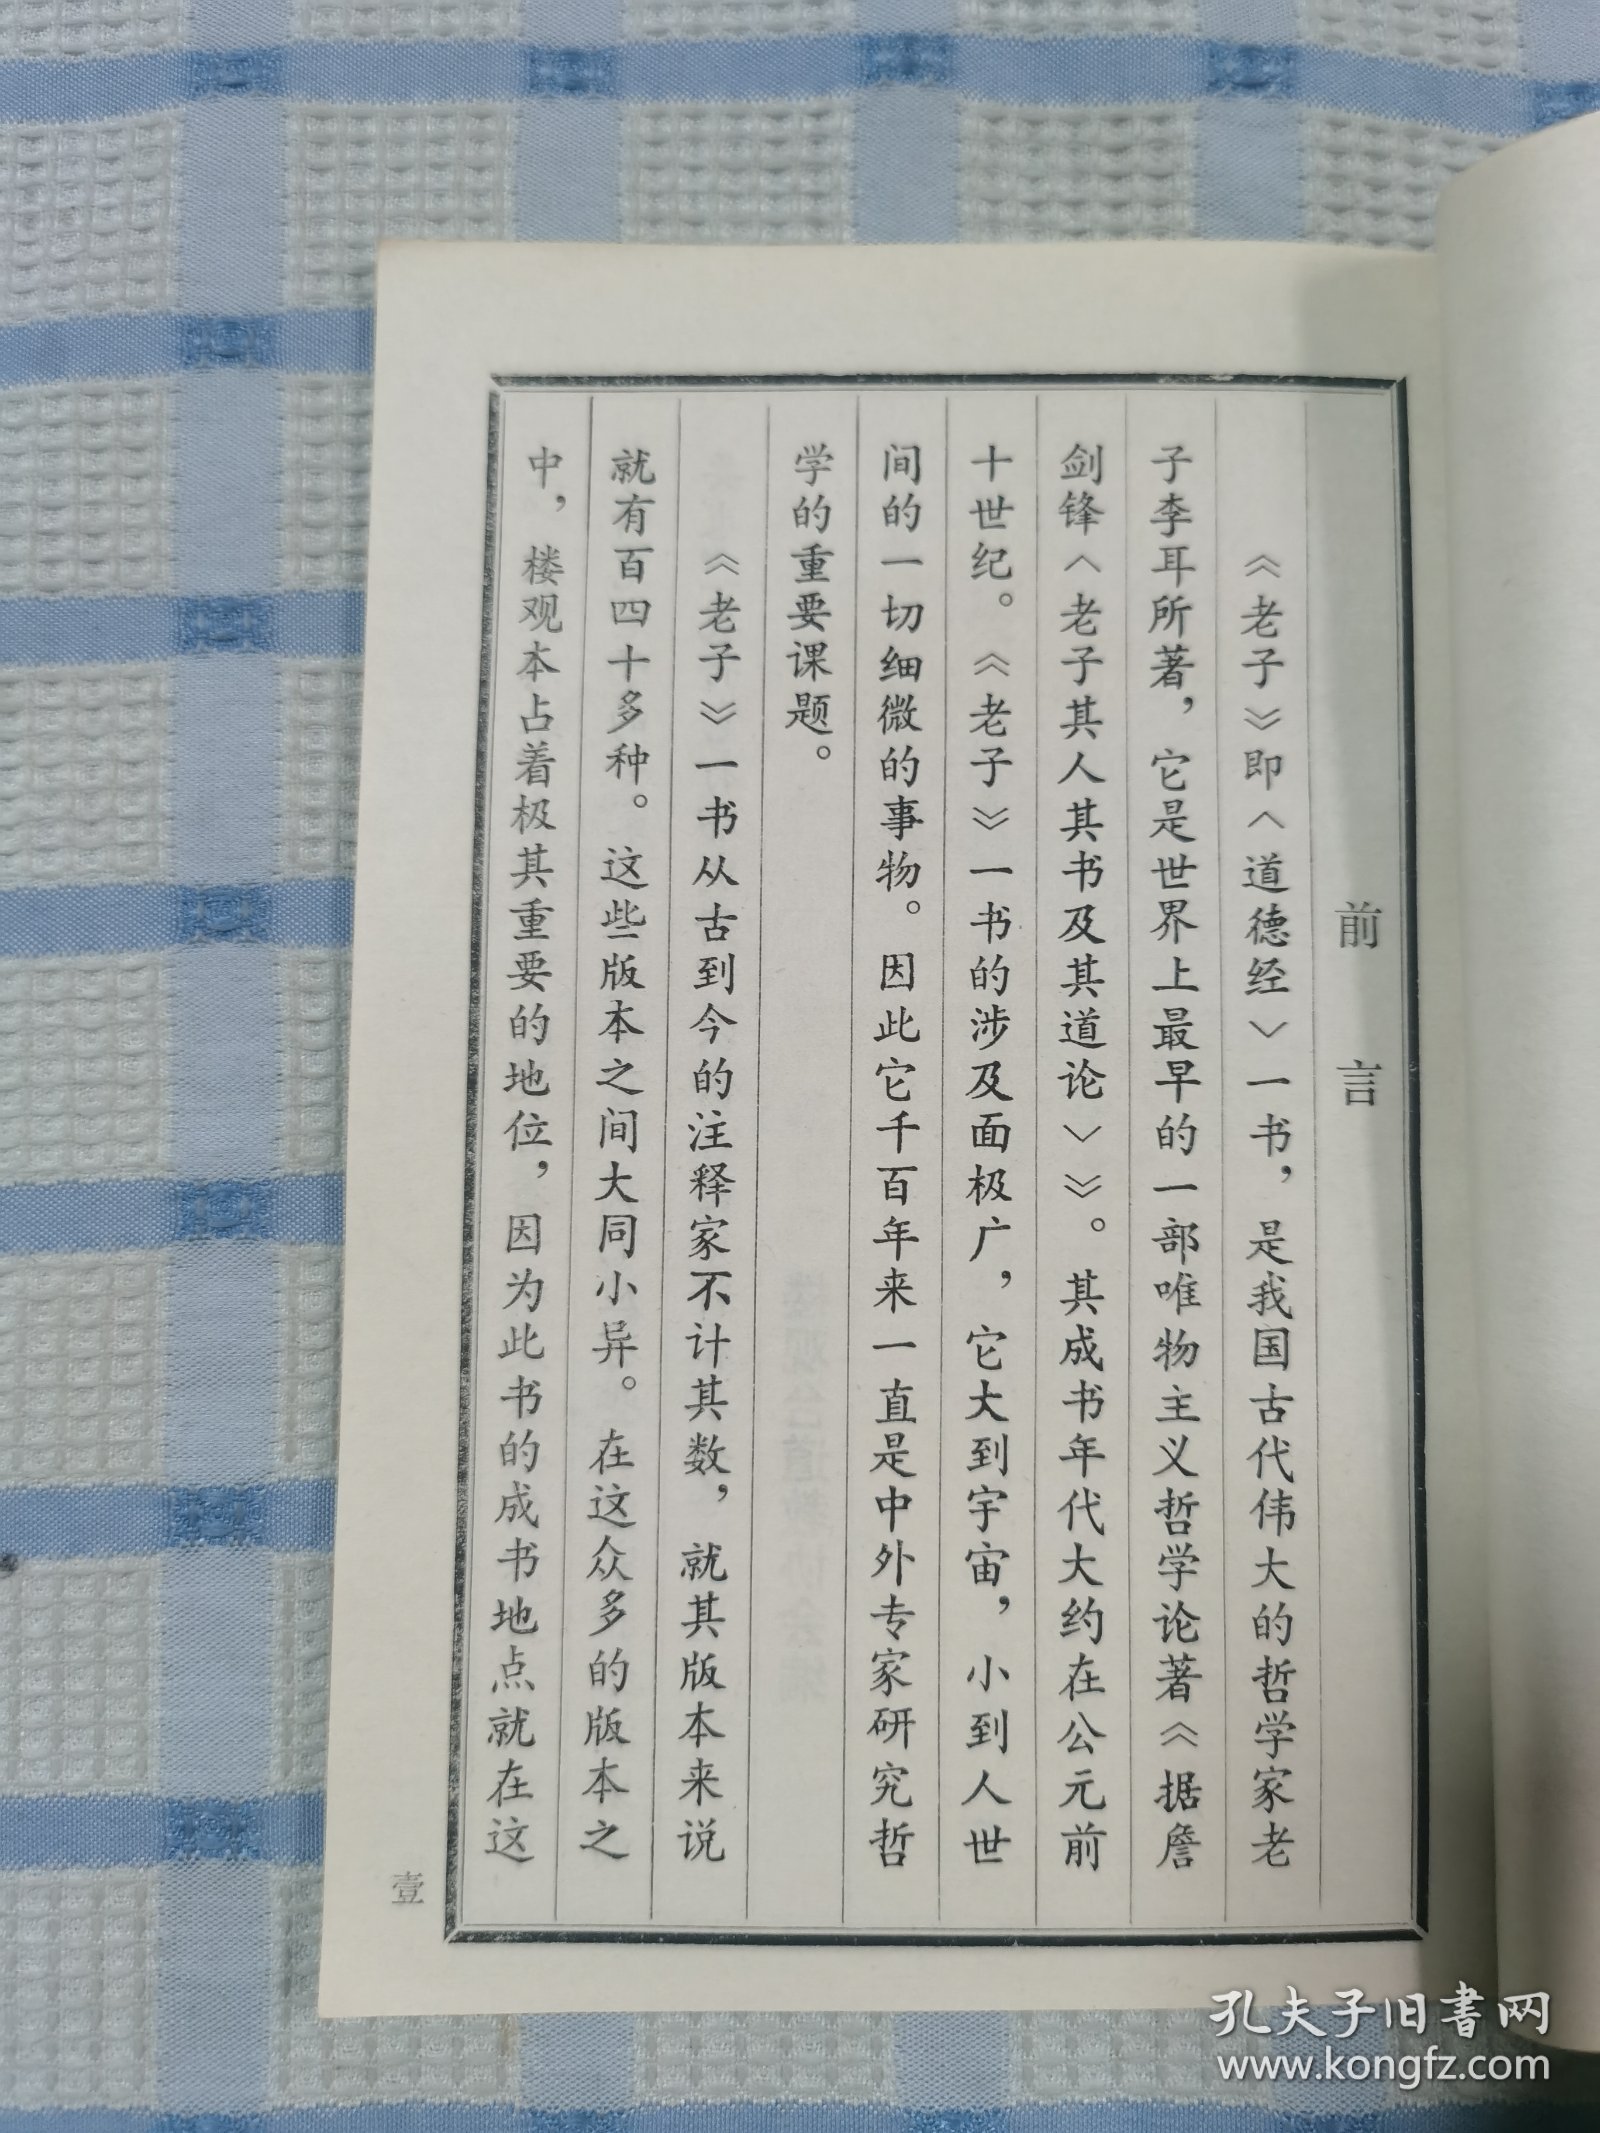 前言
《老子》即〈道德经〉一书，是我国古代伟大的哲学家老
子李耳所著，它是世界上最早的一部唯物主义哲学论著《据詹
剑锋〈老子其人其书及其道论〉》。其成书年代大约在公元前
十世纪。《老子》一书的涉及面极广，它大到宇宙，小到人世
间的一切细微的事物。因此它千百年来一直是中外专家研究哲
学的重要课题。
《老子》一书从古到今的注释家不计其数，就其版本来说
就有百四十多种。这些版本之间大同小异。在这众多的版本之
中，楼观本占着极其重要的地位，因为此书的成书地点就在这
壹
孔夫子旧書网
www.kongfz.com